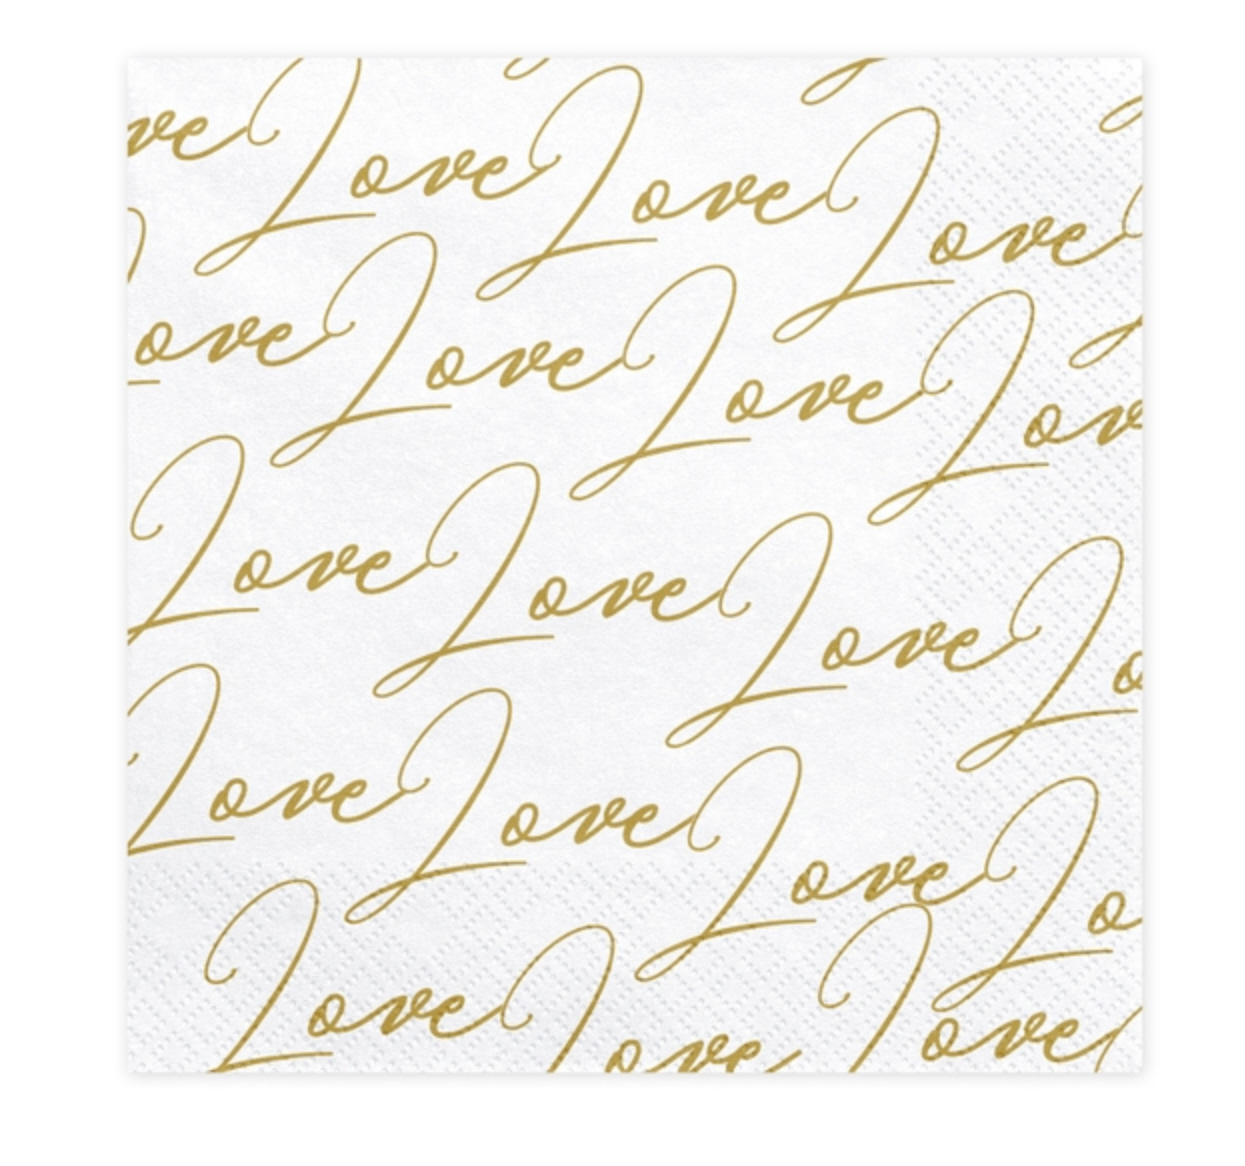 ve Love Love Love
Love Love Love Lov
Love Love Love Lo
Love Love Love Lo
Love Love Love